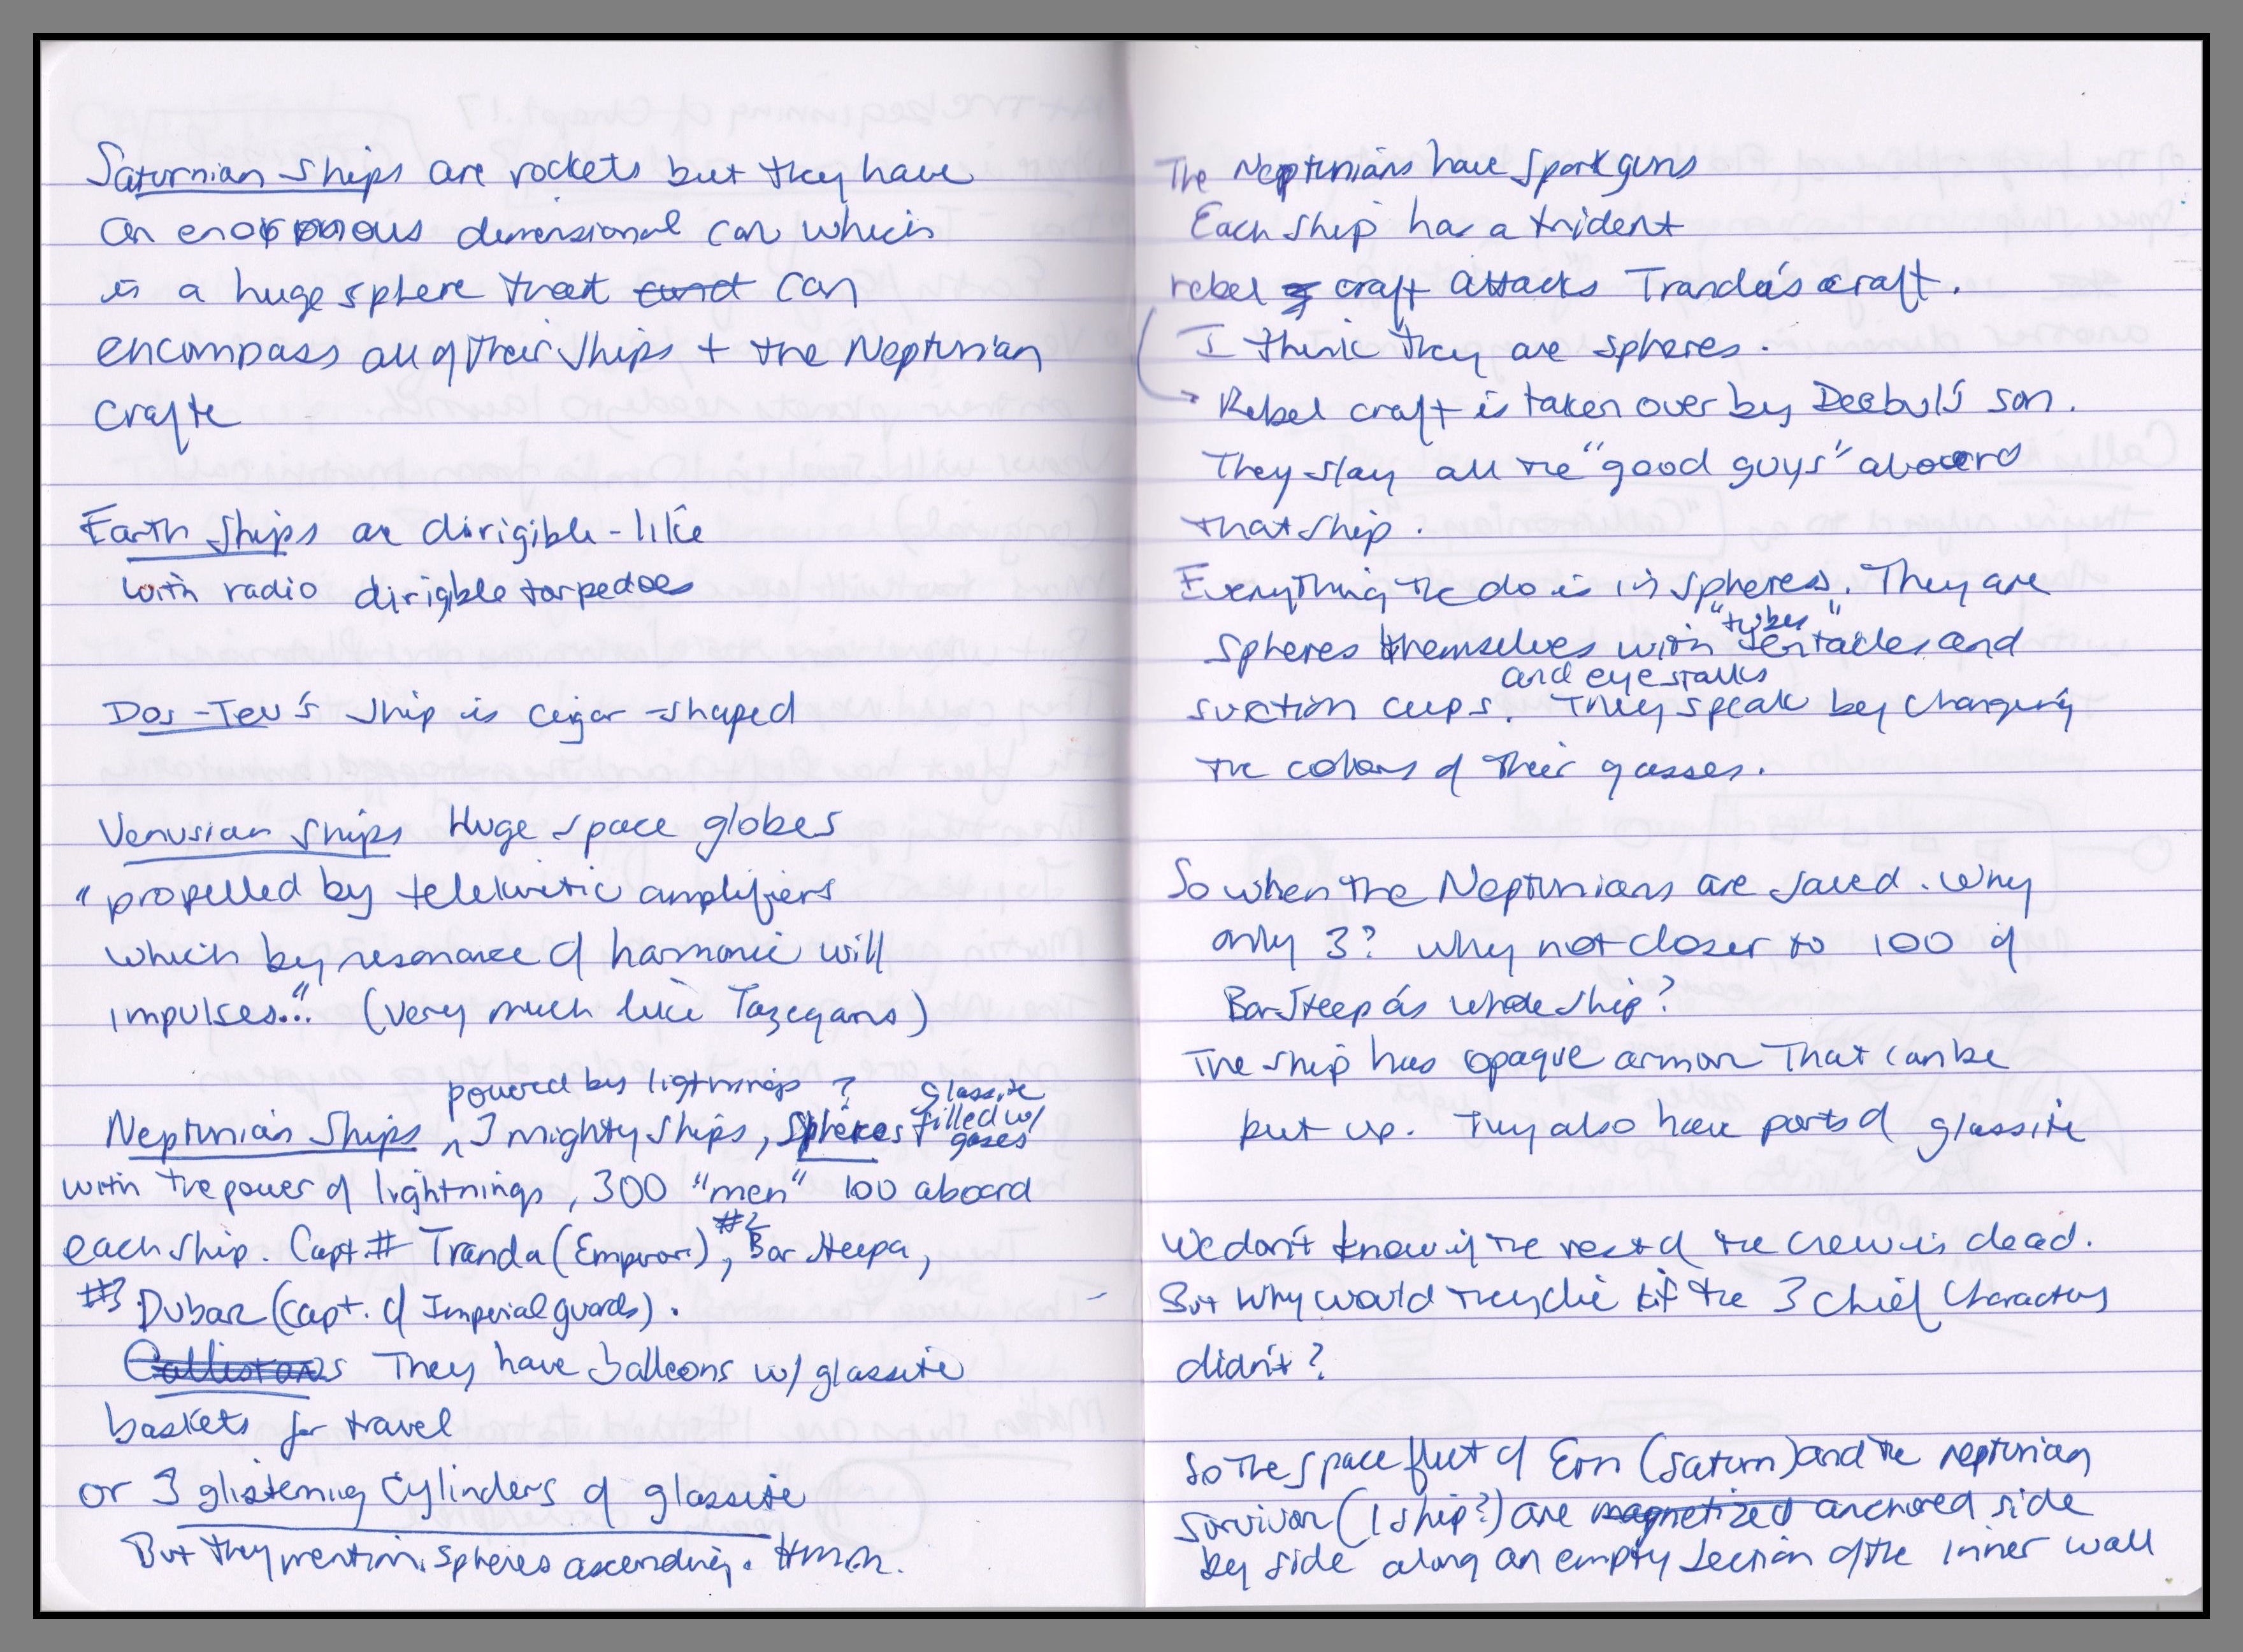 Saturnian Ships are rockets but they have
an enormous dimensional car which
is a huge sphere that and can
encompass all of their ships + the Neptunian
crafte
Earth Ships are dirigible-like
with radio dirigible torpedoes
Dos-Tev's ship is cigar-shaped
Venusian Ships Huge space globes
"propelled by telekinetic amplifiers
which by resonance of harmonic will
impulses..." (very much like Tazegans)
powered by lightnings ? glassite
Neptunian Ships ^ 3 mighty ships, Spheres filled w/ gases
with the power of lightnings, 300 "men" 100 aboard
each ship. Capt. # Tranda (Emperor), #2 Bar Steepa,
#3 Dubar (Capt. of Imperial guards).
Callistans They have balloons w/ glassite
baskets for travel
or 3 glistening cylinders of glassite
But they mention spheres ascending. Hmm.
The Neptunians have Spark guns
Each ship has a trident
rebel craft attacks Tranda's craft.
I think they are spheres.
Rebel craft is taken over by Deebul's son.
They slay all the "good guys" aboard
that ship.
Everything the do is in spheres. They are
"tubes"
spheres themselves with tentacles and
and eyestalks
suction cups. They speak by changing
the colors of their gasses.
So when the Neptunians are saved. Why
only 3? Why not closer to 100 of
Bar Steepa's whole ship?
The ship has opaque armor that can be
put up. They also have ports of glassite
We don't know if the rest of the crew is dead.
But why would they die if the 3 chief characters
didn't?
So the space fleet of Ern (Saturn) and the neptunian
survivor (1 ship?) are magnetized anchored side
by side along an empty section of the inner wall